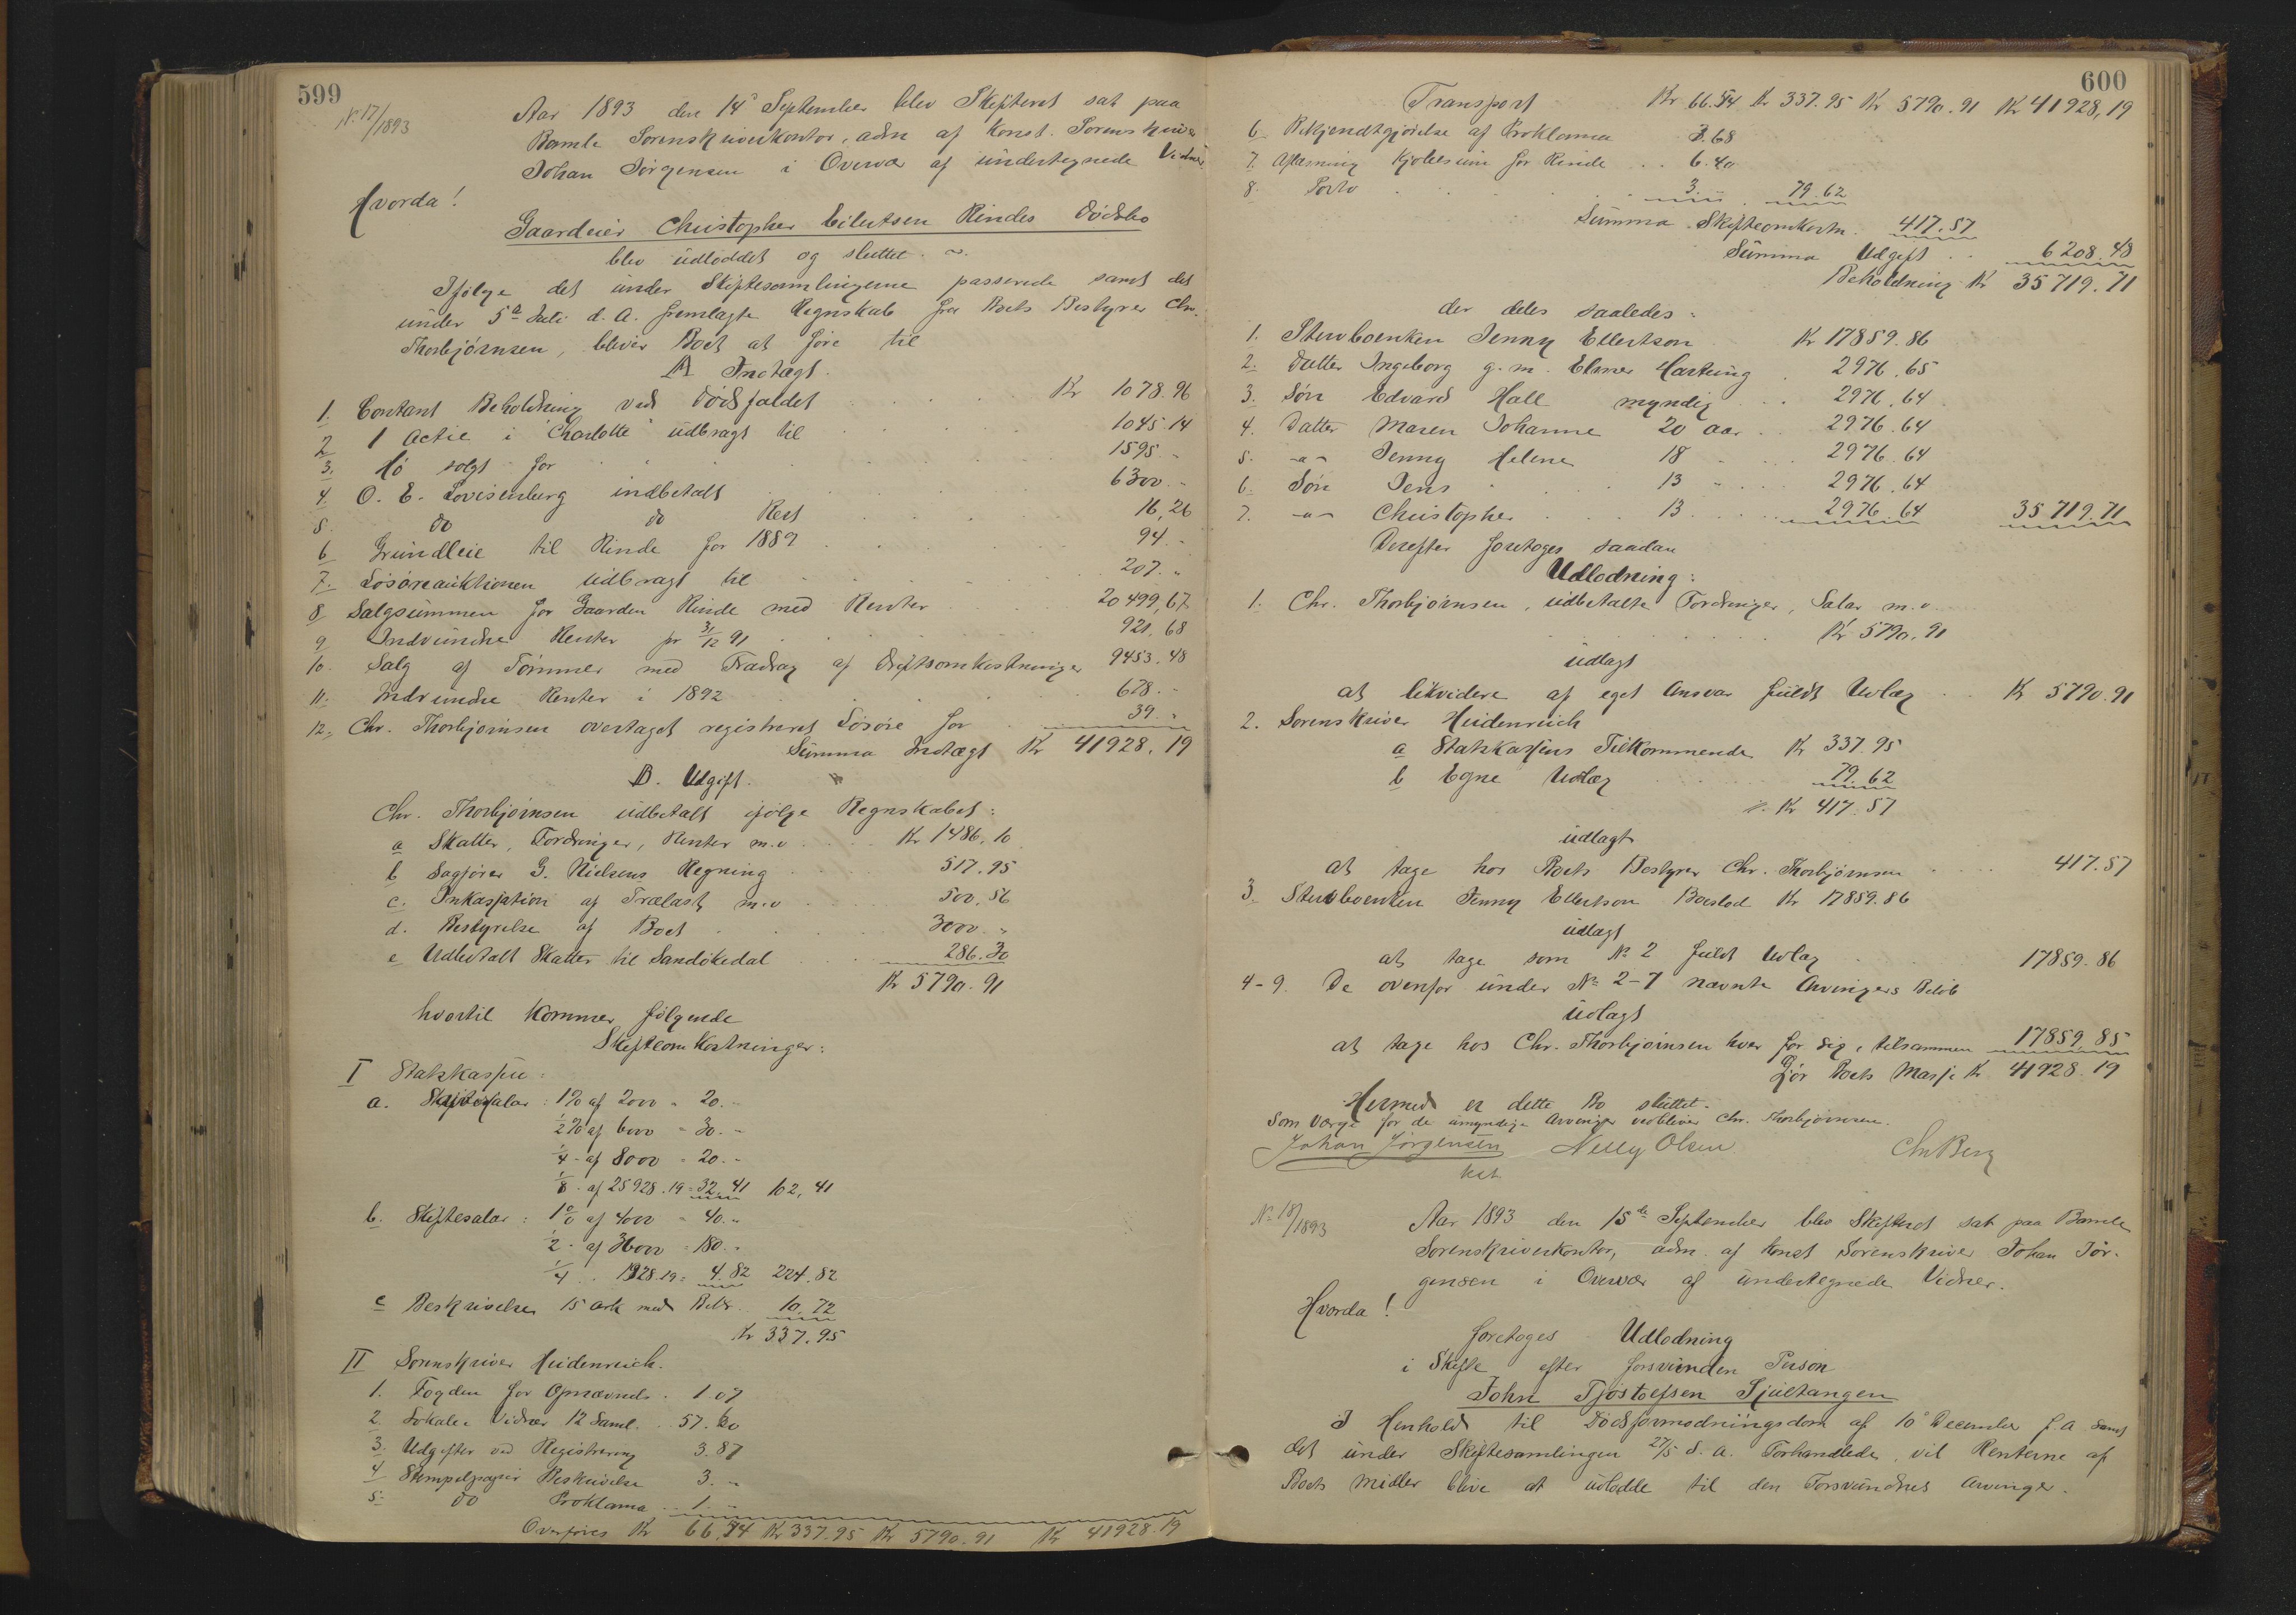 599
N. 17/1893
Aar 1893 den 14de September blev Skifteret sat paa
Bamle Sorenskriverkontor, adm af Konst. Sorenskriver
Johan Jörgensen i Overvær af undertegnede Vidner
Hvorda!
Gaardeier Christopher Eilertsen Rindes Dödsbo
blev udloddet og sluttet.
Ifölge det under Skiftesamlingerne passerede samt det
under 5te Juli d. A. fremlagte Regnskab fra Boets Bestyrer Chr.
Thorbjörnsen, bliver Boet at före til
A Indtægt.
1. Contant Beholdning ved Dödsfaldet Kr 1078.96
2 1 Actie i "Charlotte" udbragt til 1045.14
3. Hö solgt for 1595 "
4. O. E. Lovisenberg indbetalt 6300. "
5. do do Rest 16,26
6 Grundleie til Rinde for 1889 94. "
7. Lösöreauktionen udbragt til 207. "
8 Salgsummen for Gaarden Rinde med Renter 20499,67
9 Indvundne Renter pr 31/12 91 921,68
10. Salg af Tömmer med Fradrag af Driftsomkostninger 9453.48
11. Indvundne Renter i 1892 678. "
12. Chr. Thorbjörnsen overtaget registreret Lösöre for 39. "
Summa Indtægt Kr 41928.19
B. Udgift.
Chr. Thorbjörnsen udbetalt ifölge Regnskabet:
a Skatter, Fordringer, Renter m.v Kr 1486.10
b Sagförer G. Nielsens Regning 517.95
c. Inkassation af Trælast m.v 500.56
d. Bestyrelse af Boet 3000. "
e Udbetalt Skatter til Sandökedal 286.30
Kr 5790.91
hvortil kommer fölgende
Skifteomkostninger:
I Statskassen:
a. : 1% af 2000 = 20. "
1/2 % af 6000 = 30. "
1/4 - af 8000 = 20. "
1/8 - af 25928.19 = 32.41 102,41
b. Skiftesalar: 1% af 4000 = 40. "
1/2 - af 36000 = 180. "
1/4 . . 1928.19 = 4.82 224.82
c Beskrivelse 15 ark med Bekr. 10.72
Kr 337.95
II Sorenskriver Heidenreich.
1. Fogden for Opnævnds. 1.07
2. Lokale Vidner 12 Saml. 57.60
3. Udgifter ved Registrering 3.87
4 Stempelpapir Beskrivelse 3. "
5. do Proklama 1. "
Overföres Kr 66.54 Kr 337.95 Kr 5790.91 Kr 41928.19
600
Transport Kr 66.54 Kr 337.95 Kr 5790.91 Kr 41928,19
6. Bekjendtgjörelse af Proklama 3.68
7. Aflæsning Kjöbesum for Rinde 6.40
8. Porto 3. " 79.62
Summa Skifteomkostn. 417.57
Summa Udgift 6208.48
Beholdning Kr 35719.71
der deles saaledes:
1. Stervboenken Jenny Ellertson Kr 17859.86
2. Datter Ingeborg g. m. Elmer Hartung 2976.65
3. Sön Edvard Hall myndig 2976.64
4. Datter Maren Johanne 20 aar 2976.64
5. -a- Jenny Helene 18 - 2976.64
6. Sön Jens 13 - 2976.64
7. -a- Christopher 13 2976.64 35719.71
Derefter foretoges saadan
Udlodning:
1. Chr. Thorbjörnsen, udbetalte Fordringer, Salar m.v
Kr 5790.91
udlagt
at likvidere af eget Ansvar fuldt Udlæg Kr 5790.91
2. Sorenskriver Heidenreich
a Statskassens Tilkommende Kr 337.95
b Egne Udlæg 79.62
Kr 417.57
udlagt
at tage hos Boets Bestyrer Chr. Thorbjörnsen 417.57
3. Stervboenken Jenny Ellertson Boeslod Kr 17859.86
udlagt
at tage som No 2 fuldt Udlæg 17859.86
4-9. De ovenfor under No 2-7 nævnte Arvingers Belöb
udlagt
at tage hos Chr. Thorbjörnsen hver for sig, tilsammen 17859.85
Gjör Boets Masse Kr 41928.19
Hermed er dette Bo sluttet.
Som Værge for de umyndige Arvinger vedbliver Chr. Thorbjörnsen.
Johan Jörgensen Nelly Olsen Chr Berg
kst.
No 18/1893
Aar 1893 den 15de September blev Skifteret sat paa Bamle
Sorenskriverkontor, adm. af Konst Sorenskriver Johan Jör-
gensen i Overvær af undertegnede Vidner.
Hvorda!
foretoges Udlodning
i Skifte efter forsvunden Person
John Tjöstolfsen Sjultangen
I Henhold til Dödsformodningsdom af 10de December f. a samt
det under Skiftesamlingen 27/5 d. A. Forhandlede, vil Renterne af
Boets Midler blive at udlodde til den Forsvundnes Arvinger.